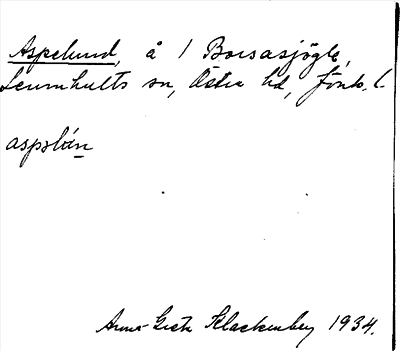 Aspelund, å 1 Borsasjögle,
Lemnhults sn, Östra hd, Jönk. l.
aspəlún
Anna-Greta Klackenberg 1934.